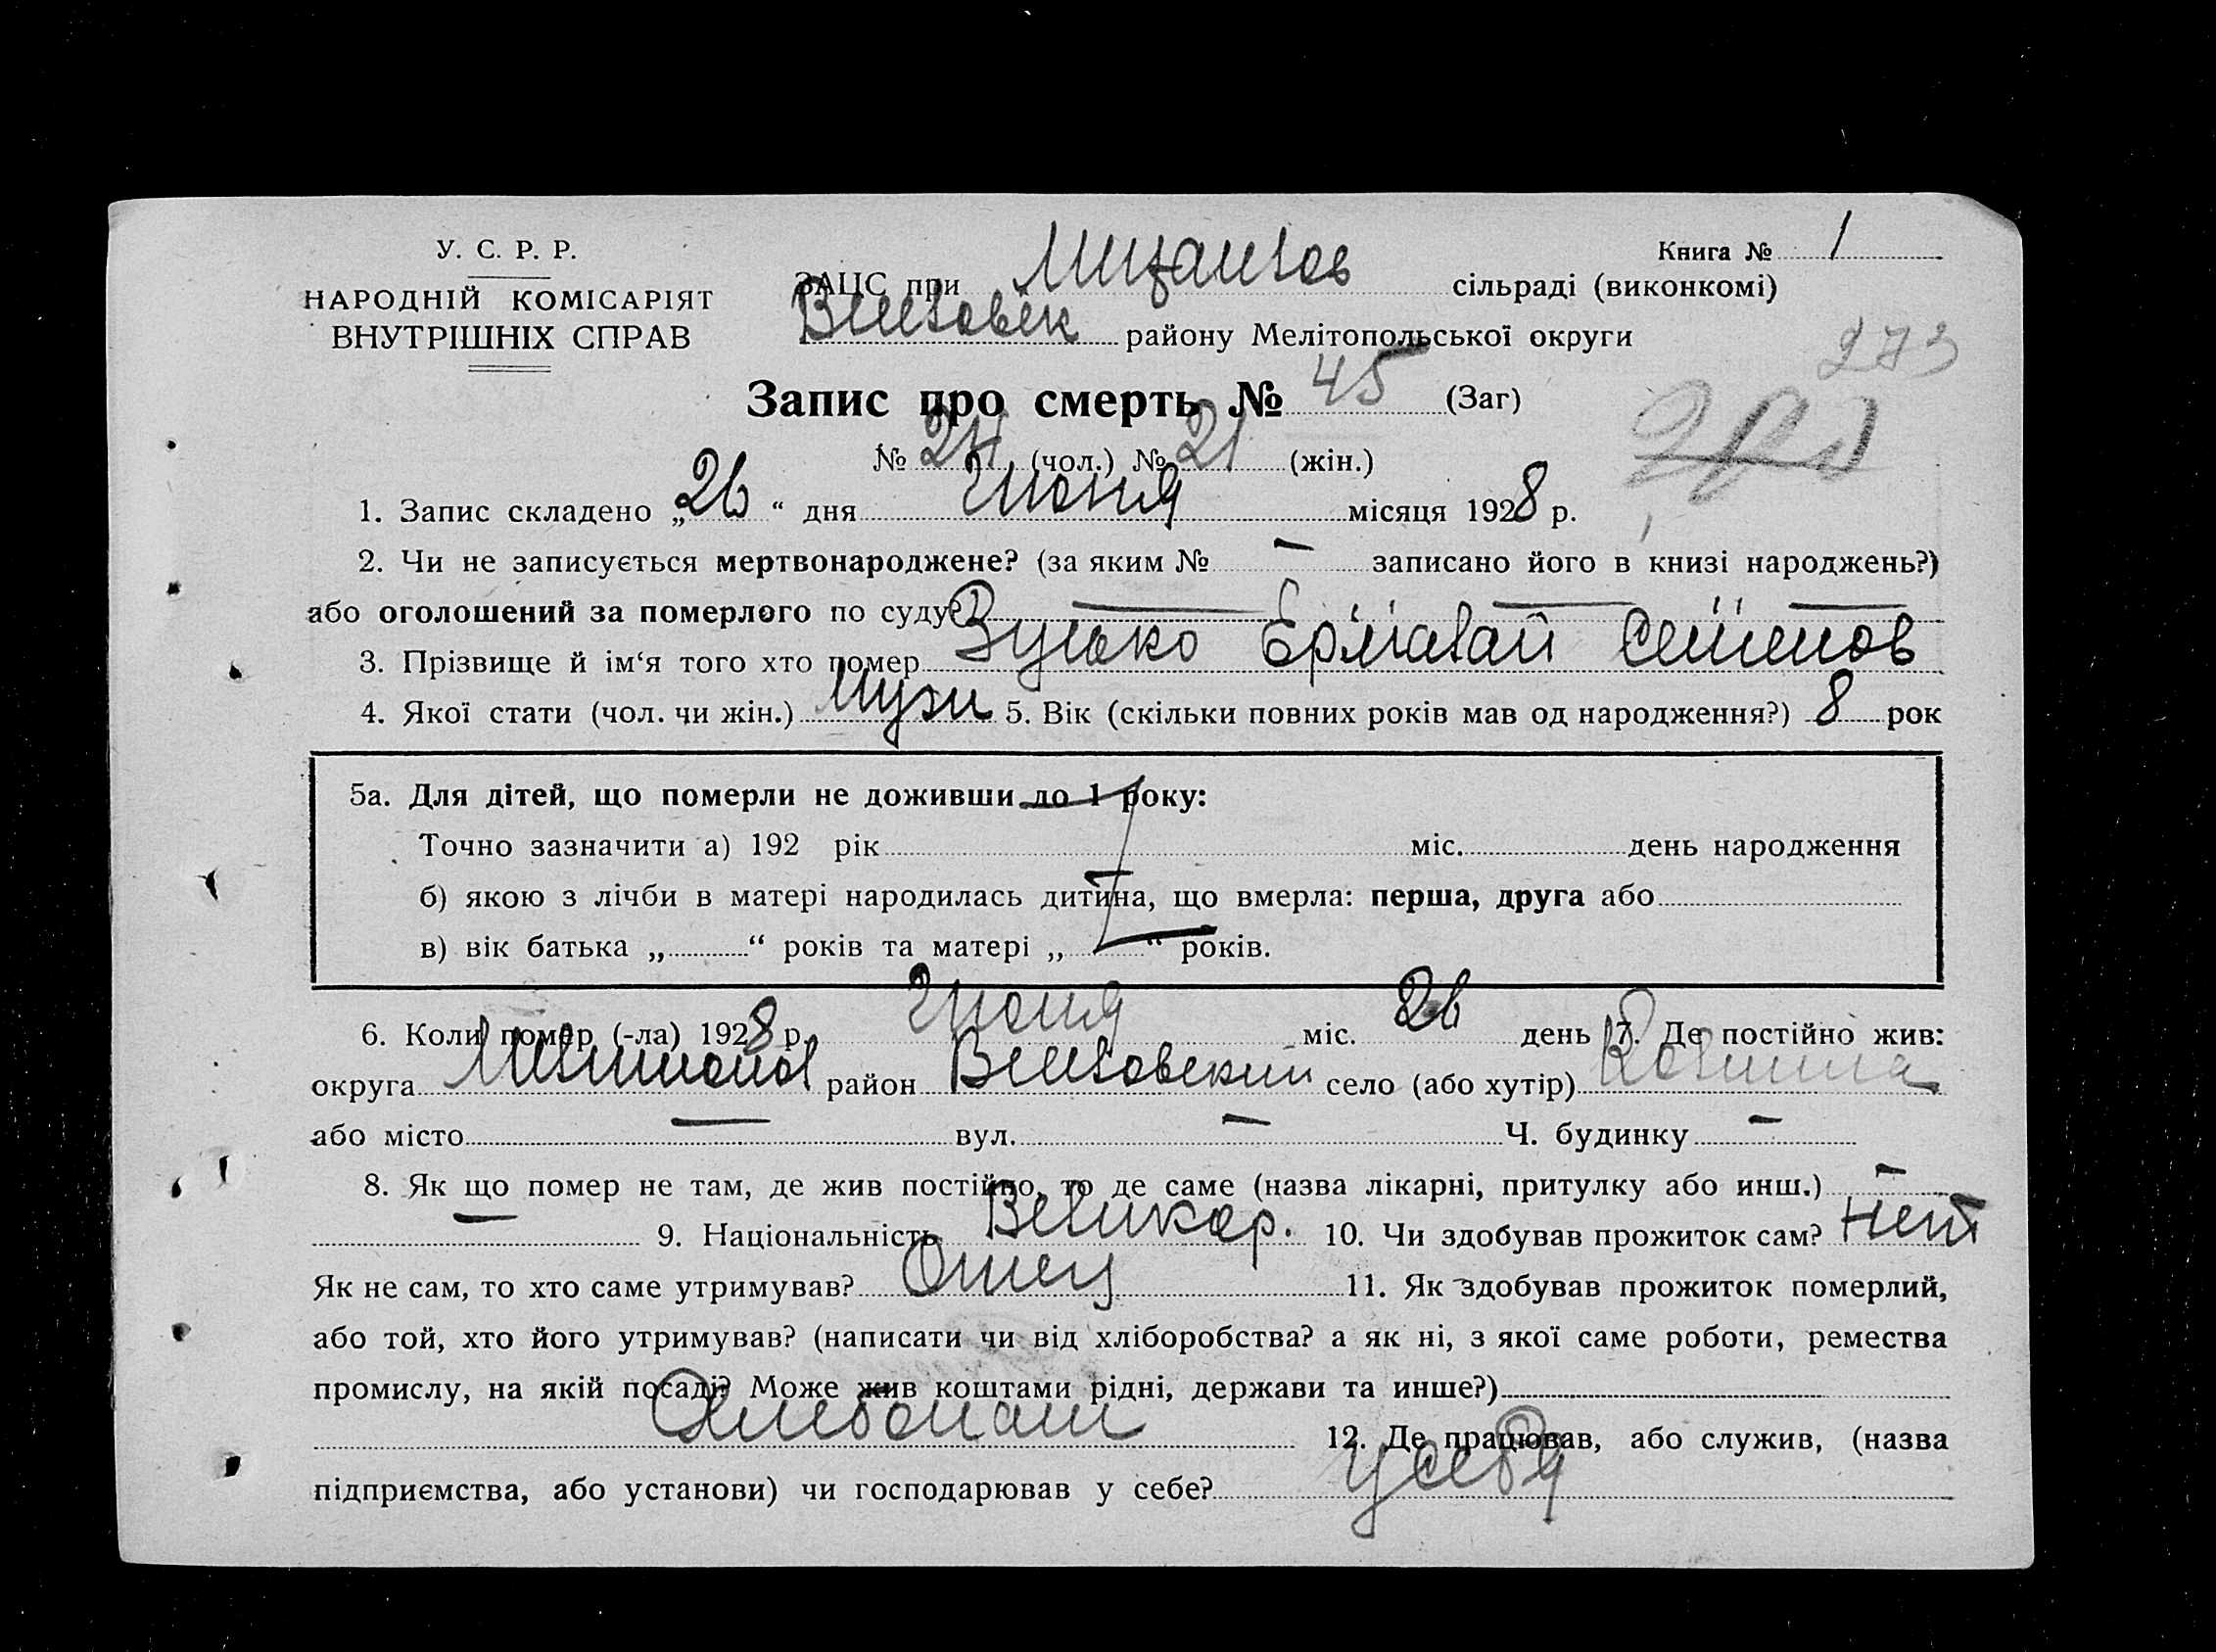 У. С. Р. Р.
НАРОДНІЙ КОМІСАРІЯТ
ВНУТРІШНІХ СПРАВ
Книга № 1
ЗАЦС при сільраді (виконкомі)
району Мелітопольської округи
273
Запис про смерть № 45 (Заг)
№ 24 (чол.) № 21 (жін.)
1. Запис складено „26“ дня Июня місяця 1928 р.
2. Чи не записується мертвонароджене? (за яким № — записано його в книзі народжень?)
або оголошений за померлого по суду?
3. Прізвище й ім‘я того хто помер
4. Якої стати (чол. чи жін.) Мужи 5. Вік (скільки повних років мав од народження?) 8 рок
5а. Для дітей, що померли не доживши до 1 року:
Точно зазначити а) 192 рік міс. день народження
б) якою з лічби в матері народилась дитина, що вмерла: перша, друга або
в) вік батька „ “ років та матері „ “ років.
6. Коли помер (-ла) 1928 р. Июня міс. 26 день 7. Де постійно жив:
округа район село (або хутір)
або місто — вул. — Ч. будинку —
8. Як що помер не там, де жив постійно, то де саме (назва лікарні, притулку або инш.) —
— 9. Національність Великор. 10. Чи здобував прожиток сам? Нет
Як не сам, то хто саме утримував? Отец 11. Як здобував прожиток померлий,
або той, хто його утримував? (написати чи від хліборобства? а як ні, з якої саме роботи, ремества
промислу, на якій посаді? Може жив коштами рідні, держави та инше?)
12. Де працював, або служив, (назва
підприємства, або установи) чи господарював у себе? у себя